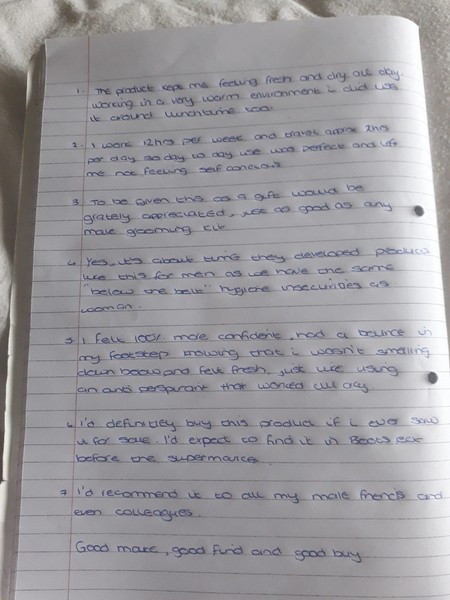 1. The product kept me feeling fresh and dry all day.
working in a very warm environment i did use
it around lunchtime too.
2. I work 12hrs per week and travel approx 2hrs
per day so day to day use was perfect and left
me not feeling self concious
3 To be given this as a gift would be
grately appreciated, just as good as any
male grooming kit
4 Yes, it's about time they developed products
like this for men as we have the same
"below the belt" hygiene insecurities as
woman.
5 I felt 100% more confident, had a bounce in
my footstep knowing that i wasn't smelling
down below and felt fresh, just like using
an anti perspirant that worked all day
6 I'd definitley buy this product if i ever saw
it for sale. I'd expect to find it in Boots etc
before the supermarkets
7 I'd recommend it to all my male friends and
even colleagues.
Good make, good find and good buy